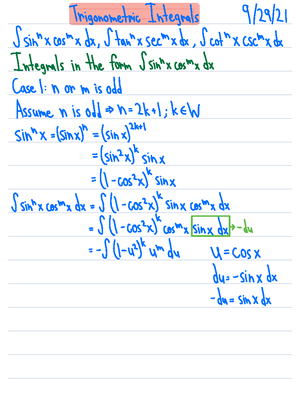 Trigonometric Integrals 9/29/21
∫sinⁿx cosᵐx dx, ∫tanⁿx secᵐx dx, ∫cotⁿx cscᵐx dx
Integrals in the form ∫sinⁿx cosᵐx dx
Case 1: n or m is odd
Assume n is odd ⇒ n=2k+1; k∈W
sinⁿx = (sinx)ⁿ = (sinx)²ᵏ⁺¹
= (sin²x)ᵏ sinx
= (1-cos²x)ᵏ sinx
∫sinⁿx cosᵐx dx = ∫(1-cos²x)ᵏ sinx cosᵐx dx
= ∫(1-cos²x)ᵏ cosᵐx sinx dx → -du
= -∫(1-u²)ᵏ uᵐ du
u = cosx
du = -sinx dx
-du = sinx dx